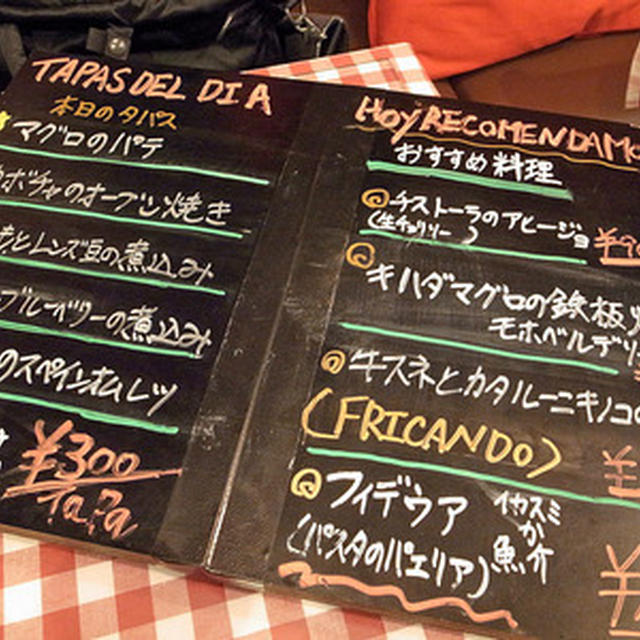 TAPAS DEL DIA
本日のタパス
マグロのパテ
カボチャのオーブン焼き
レンズ豆の煮込み
ブルーベリーの煮込み
のスペインオムレツ
¥300
Tapa
HOY RECOMENDAMO
おすすめ料理
チストーラのアヒージョ
(生チョリソー)
キハダマグロの鉄板
モホベルデ
牛スネとカタルーニャキノコの
(FRICANDO)
フィデウア
イカスミ
か
魚介
(パスタのパエリア)